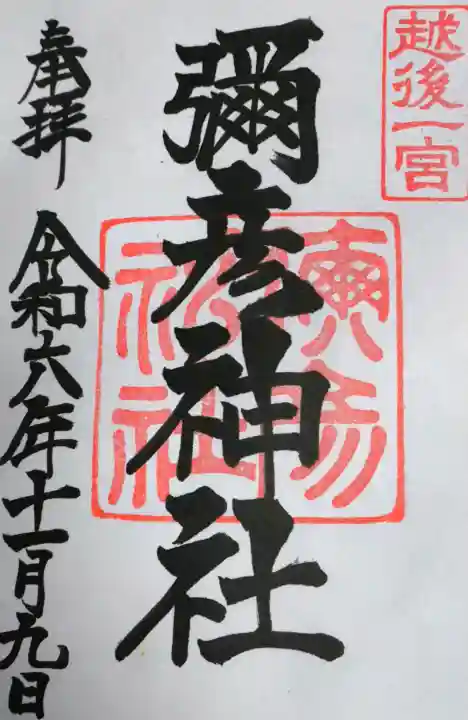 越後一宮
彌彦神社
奉拝
令和六年十一月九日
彌彦神社